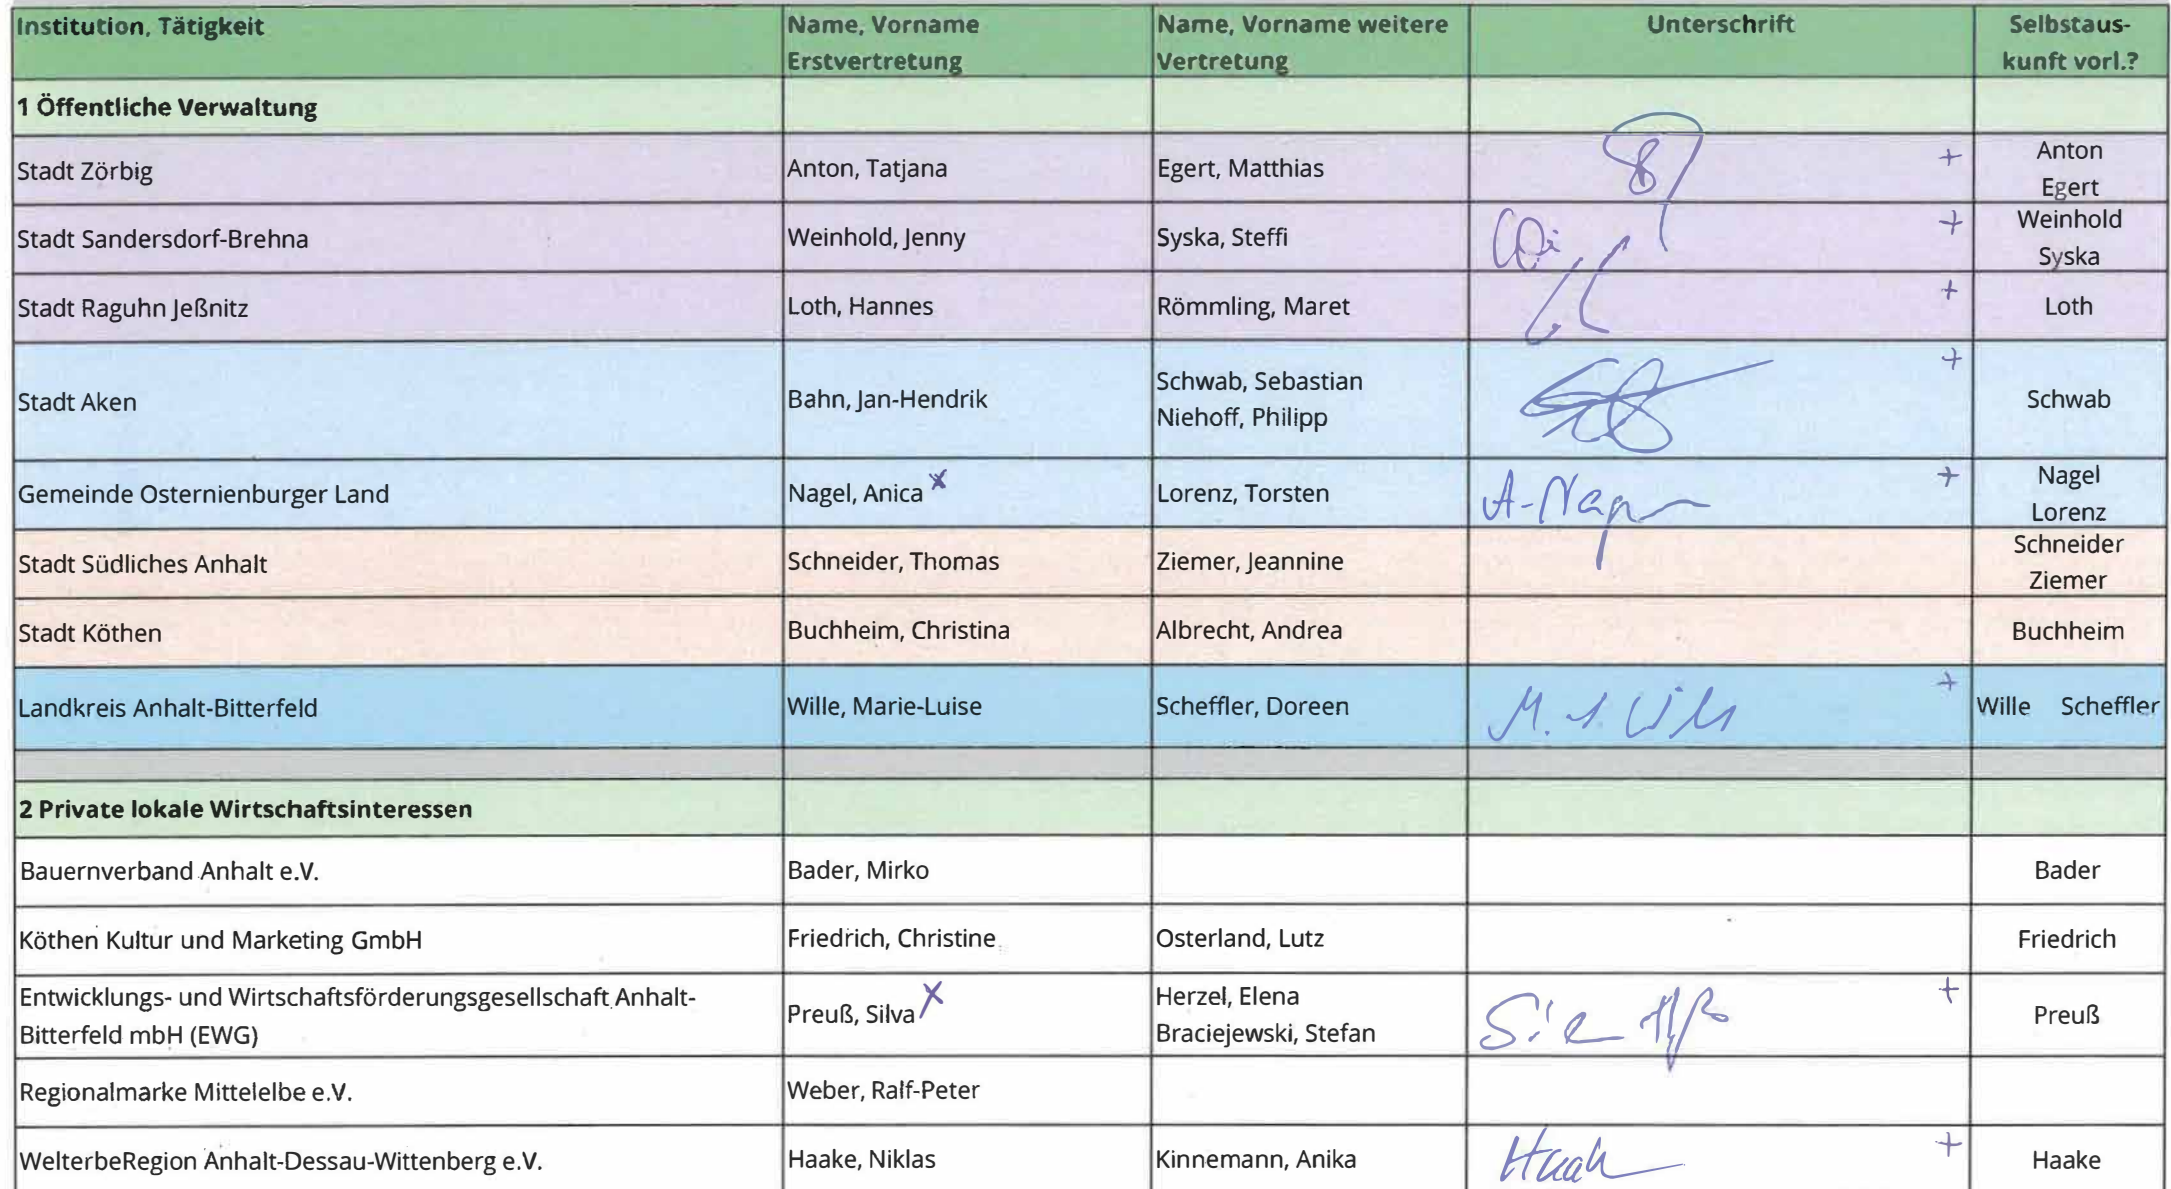 Institution, Tätigkeit
Name, Vorname
Erstvertretung
Name, Vorname weitere
Vertretung
Unterschrift
Selbstaus-
kunft vorl.?
1 Öffentliche Verwaltung
Stadt Zörbig
Anton, Tatjana
Egert, Matthias
+
Anton
Egert
Stadt Sandersdorf-Brehna
Weinhold, Jenny
Syska, Steffi
+
Weinhold
Syska
Stadt Raguhn Jeßnitz
Loth, Hannes
Römmling, Maret
+
Loth
Stadt Aken
Bahn, Jan-Hendrik
Schwab, Sebastian
Niehoff, Philipp
+
Schwab
Gemeinde Osternienburger Land
Nagel, Anica x
Lorenz, Torsten
A-Nagel
+
Nagel
Lorenz
Stadt Südliches Anhalt
Schneider, Thomas
Ziemer, Jeannine
Schneider
Ziemer
Stadt Köthen
Buchheim, Christina
Albrecht, Andrea
Buchheim
Landkreis Anhalt-Bitterfeld
Wille, Marie-Luise
Scheffler, Doreen
+
Wille Scheffler
2 Private lokale Wirtschaftsinteressen
Bauernverband Anhalt e.V.
Bader, Mirko
Bader
Köthen Kultur und Marketing GmbH
Friedrich, Christine
Osterland, Lutz
Friedrich
Entwicklungs- und Wirtschaftsförderungsgesellschaft Anhalt-
Bitterfeld mbH (EWG)
Preuß, Silva x
Herzel, Elena
Braciejewski, Stefan
+
Preuß
Regionalmarke Mittelelbe e.V.
Weber, Ralf-Peter
WelterbeRegion Anhalt-Dessau-Wittenberg e.V.
Haake, Niklas
Kinnemann, Anika
Haak
+
Haake